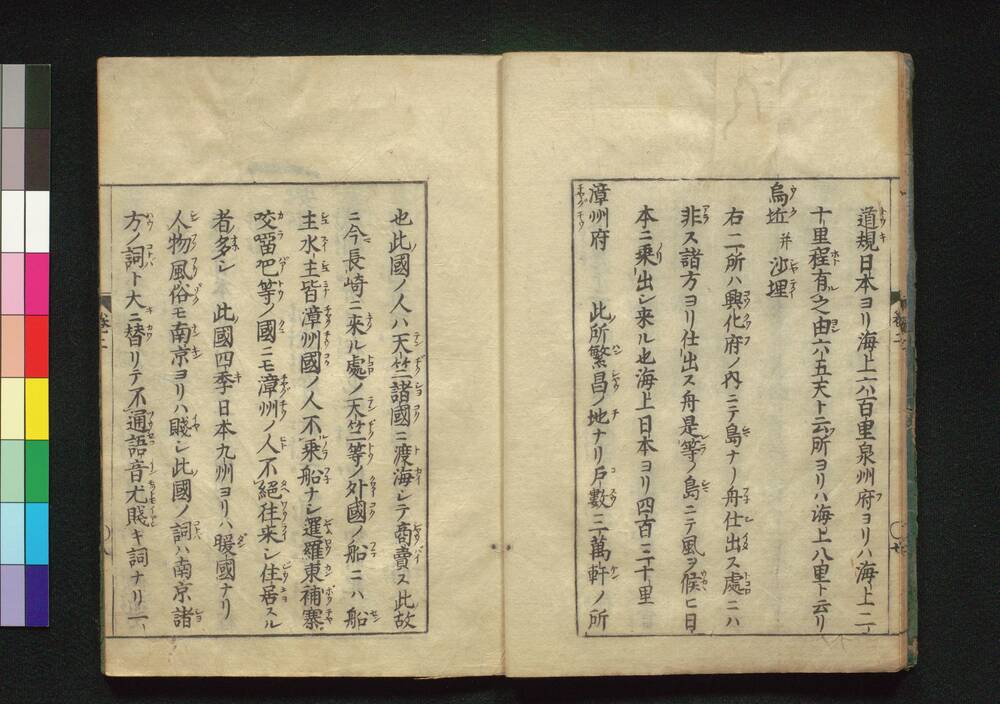 道規日本ヨリ海上六百里泉州府ヨリハ海上二
十里程有之由六五天ト云所ヨリハ海上八里ト云リ
烏坵 并 沙埋
右二所ハ興化府ノ内ニテ島ナリ舟仕出ス處ニハ
非ス諸方ヨリ仕出ス舟是等ノ島ニテ風ヲ候ヒ日
本ニ乗出シ来ル也海上日本ヨリ四百三十里
漳州府 此所繁昌ノ地ナリ戸數三萬軒ノ所
也此國ノ人ハ天竺諸國ニ渡海シテ商賣ス此故
ニ今長崎ニ來ル處ノ天竺等ノ外國ノ船ニハ船
主水主皆漳州國ノ人不乗船ナシ暹羅東補寨
咬𠺕吧等ノ國ニモ漳州ノ人不絕往来シ住居スル
者多シ 此國四季日本九州ヨリハ暖國ナリ
人物風俗モ南京ヨリハ賤シ此國ノ詞ハ南京諸
方ノ詞ト大ニ替リテ不通語音尤賤キ詞ナリ